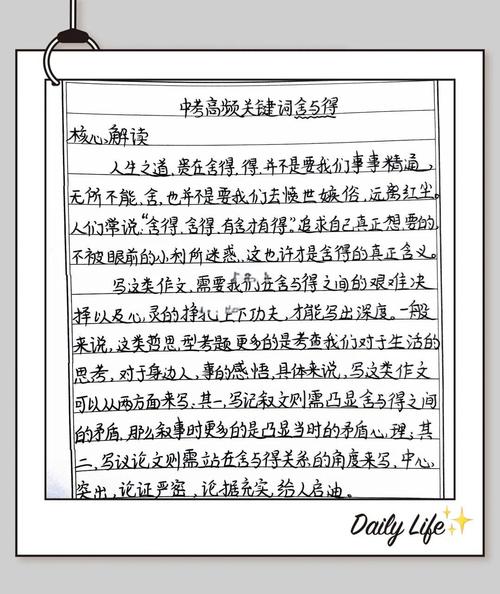 中考高频关键词舍与得
核心解读
人生之道,贵在舍得,得,并不是要我们事事精通,
无所不能,舍,也并不是要我们去愤世嫉俗,远离红尘。
人们常说“舍得,舍得,有舍才有得”。追求自己真正想要的,
不被眼前的小利所迷惑,这也许才是舍得的真正含义。
写这类作文,需要我们在舍与得之间的艰难决
择以及心灵的挣扎上下功夫,才能写出深度。一般
来说,这类哲思型考题更多的是考查我们对于生活的
思考,对于身边人、事的感悟,具体来说,写这类作文
可以从两方面来写:其一,写记叙文则需凸显舍与得之间
的矛盾,那么叙事时更多的是凸显当时的矛盾心理;其
二,写议论文则需站在舍与得关系的角度来写,中心
突出,论证严密,论据充实,给人启迪。
Daily Life